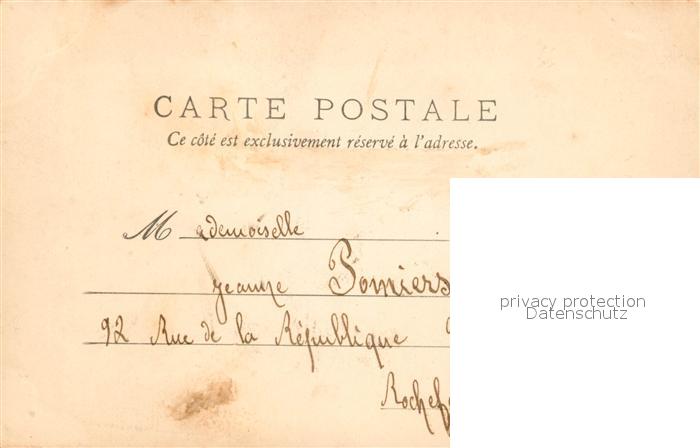 CARTE POSTALE
Ce côté est exclusivement réservé à l'adresse.
Mademoiselle
Jeanne Pomiers
92 Rue de la République
Rochef
privacy protection
Datenschutz